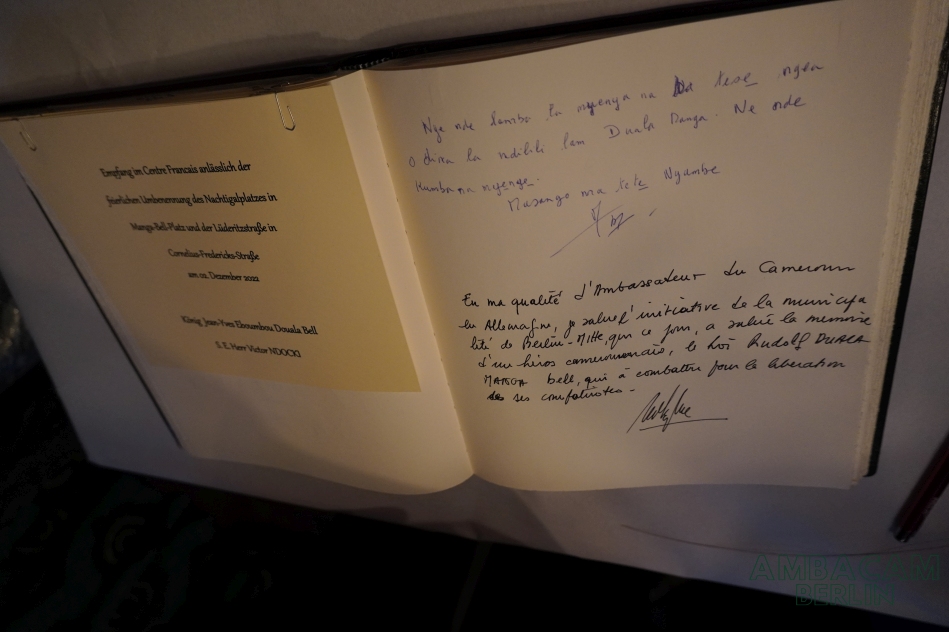 Empfang im Centre Francais anlässlich der
feierlichen Umbenennung des Nachtigalplatzes in
Manga-Bell-Platz und der Lüderitzstraße in
Cornelius-Fredericks-Straße
am 02. Dezember 2022
König Jean-Yves Eboumbou Douala Bell
S. E. Herr Victor NDOCKI
Nga nde lambo la myenya na tese ngea
o diwa la ndibili lam Duala Manga. Ne nde
Kumba na nyenge.
Musango ma tete Nyambe
En ma qualité d'Ambassadeur du Cameroun
en Allemagne, je salue l'initiative de la municipa
lité de Berlin-Mitte, qui ce jour, a salué la mémoire
d'un héros camerounais, le Roi Rudolf DUALA
MANGA bell, qui a combattu pour la libération
de ses compatriotes-
AMBACAM
BERLIN